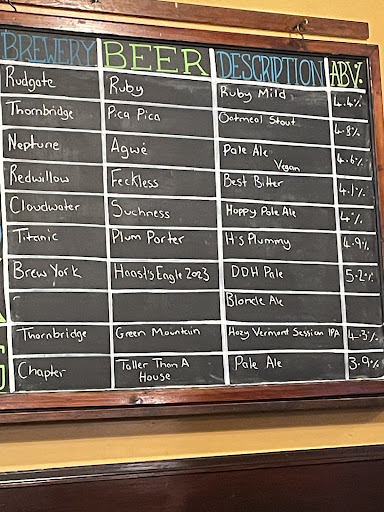 BREWERY BEER DESCRIPTION ABV%
Rudgate Ruby Ruby Mild 4.4%
Thornbridge Pica Pica Oatmeal Stout 4.8%
Neptune Agwé Pale Ale Vegan 4.6%
Redwillow Feckless Best Bitter 4.1%
Cloudwater Suchness Hoppy Pale Ale 4%
Titanic Plum Porter It's Plummy 4.9%
Brew York Haast's Eagle 2023 DDH Pale 5.2%
Blonde Ale
Thornbridge Green Mountain Hazy Vermont Session IPA 4.3%
Chapter Taller Than A House Pale Ale 3.9%